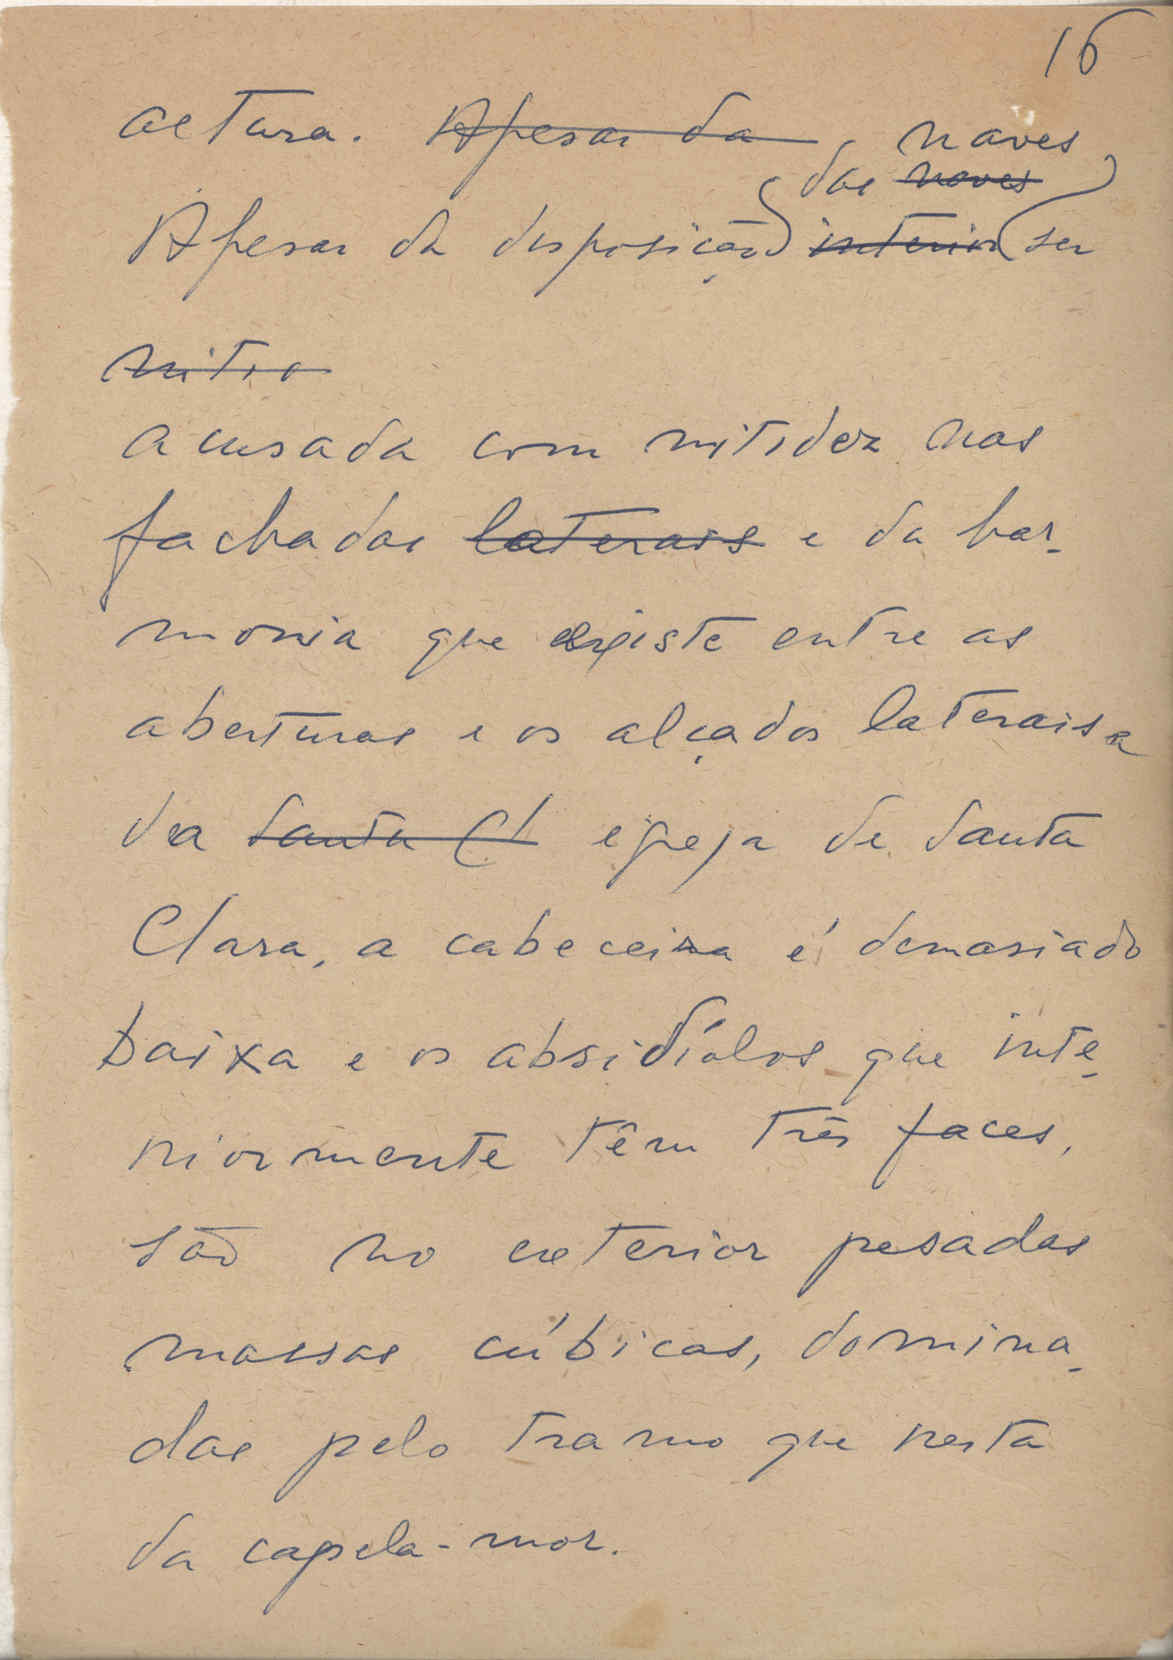 16
altura. Apesar da
naves
das naves
Apesar da disposição interior ser
nitio
acusada com nitidez nas
fachadas laterais e da har-
monia que existe entre as
aberturas e os alçados laterais
da Santa Cl igreja de Santa
Clara, a cabeceira é demasiado
baixa e os absidíolos que inte-
riormente têm três faces,
são no exterior pesadas
massas cúbicas, domina-
das pelo tramo que resta
da capela-mor.